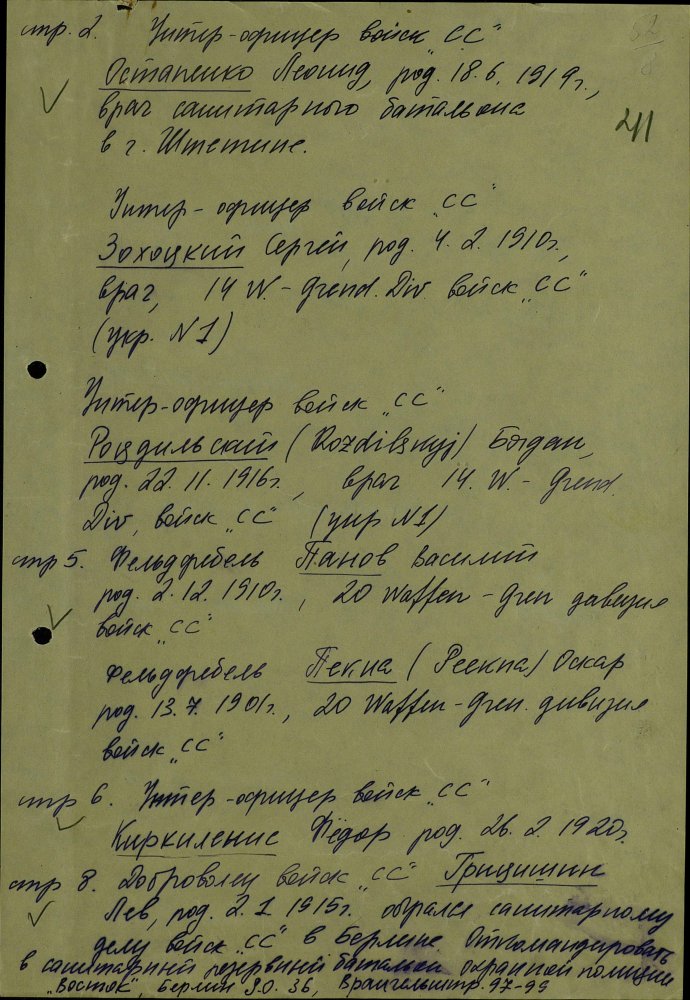 стр. 2. Унтер-офицер войск „СС"
Остапенко Леонид, род. 18.6.1919г.,
врач санитарного батальона
в г. Штетине.
211
Унтер-офицер войск „СС"
Зохоцкий Сергей, род. 4.2.1910г.,
врач, 14 W.-Grend. Div. войск „СС"
(укр. N1)
Унтер-офицер войск „СС"
Роздильский (Rozdilsnyj) Богдан,
род. 22.11.1916г., врач 14. W.-Grend.
Div. войск „СС" (укр N1)
стр 5. Фельдфебель Панов Василий
род. 2.12.1910г., 20 Waffen-Gren дивизия
войск „СС"
Фельдфебель Пекна (Peekna) Оскар
род. 13.7.1901г., 20 Waffen-Gren. дивизия
войск „СС"
стр 6. Унтер-офицер войск „СС"
Киркиленис Фёдор род. 26.2.1920г.
стр 8. Доброволец войск „СС" Грицишин
Лев, род. 2.1.1915г. обучался санитарному
делу войск „СС" в Берлине. Откомандировать
в санитарный резервный батальон охранной полиции
„Восток", Берлин S.O. 36, Врангельштр. 97-99